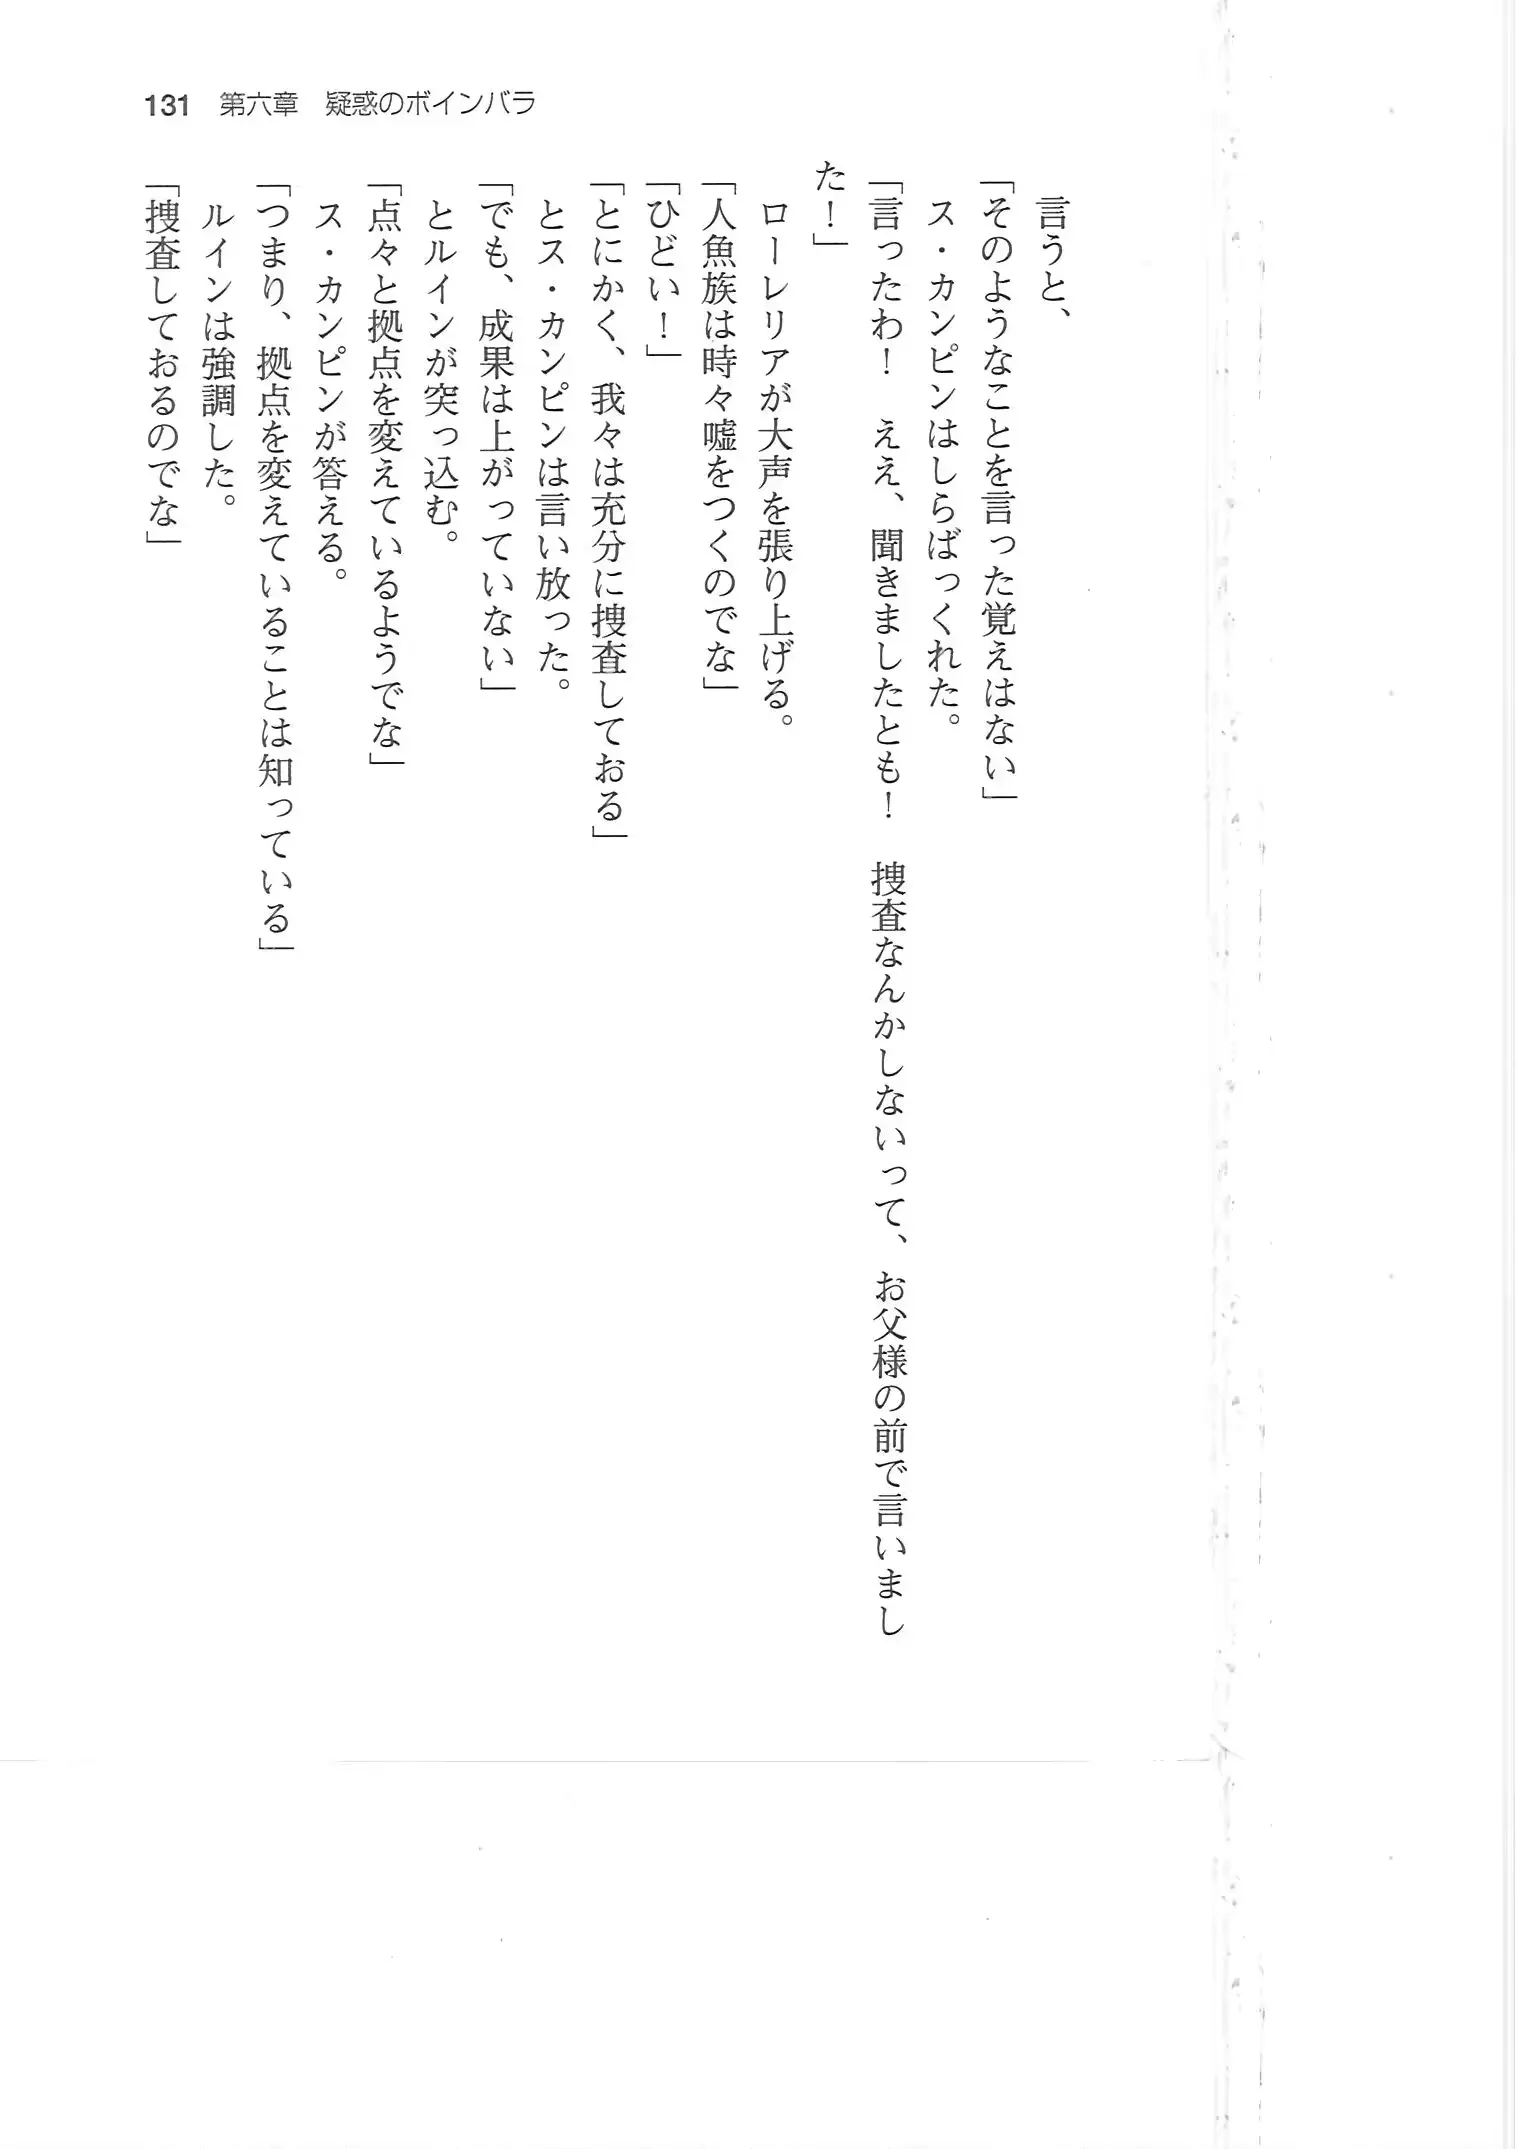 131　第六章　疑惑のボインバラ
　言うと、
「そのようなことを言った覚えはない」
　ス・カンピンはしらばっくれた。
「言ったわ！　ええ、聞きましたとも！　捜査なんかしないって、お父様の前で言いまし
た！」
　ローレリアが大声を張り上げる。
「人魚族は時々嘘をつくのでな」
「ひどい！」
「とにかく、我々は充分に捜査しておる」
　とス・カンピンは言い放った。
「でも、成果は上がっていない」
　とルインが突っ込む。
「点々と拠点を変えているようでな」
　ス・カンピンが答える。
「つまり、拠点を変えていることは知っている」
　ルインは強調した。
「捜査しておるのでな」